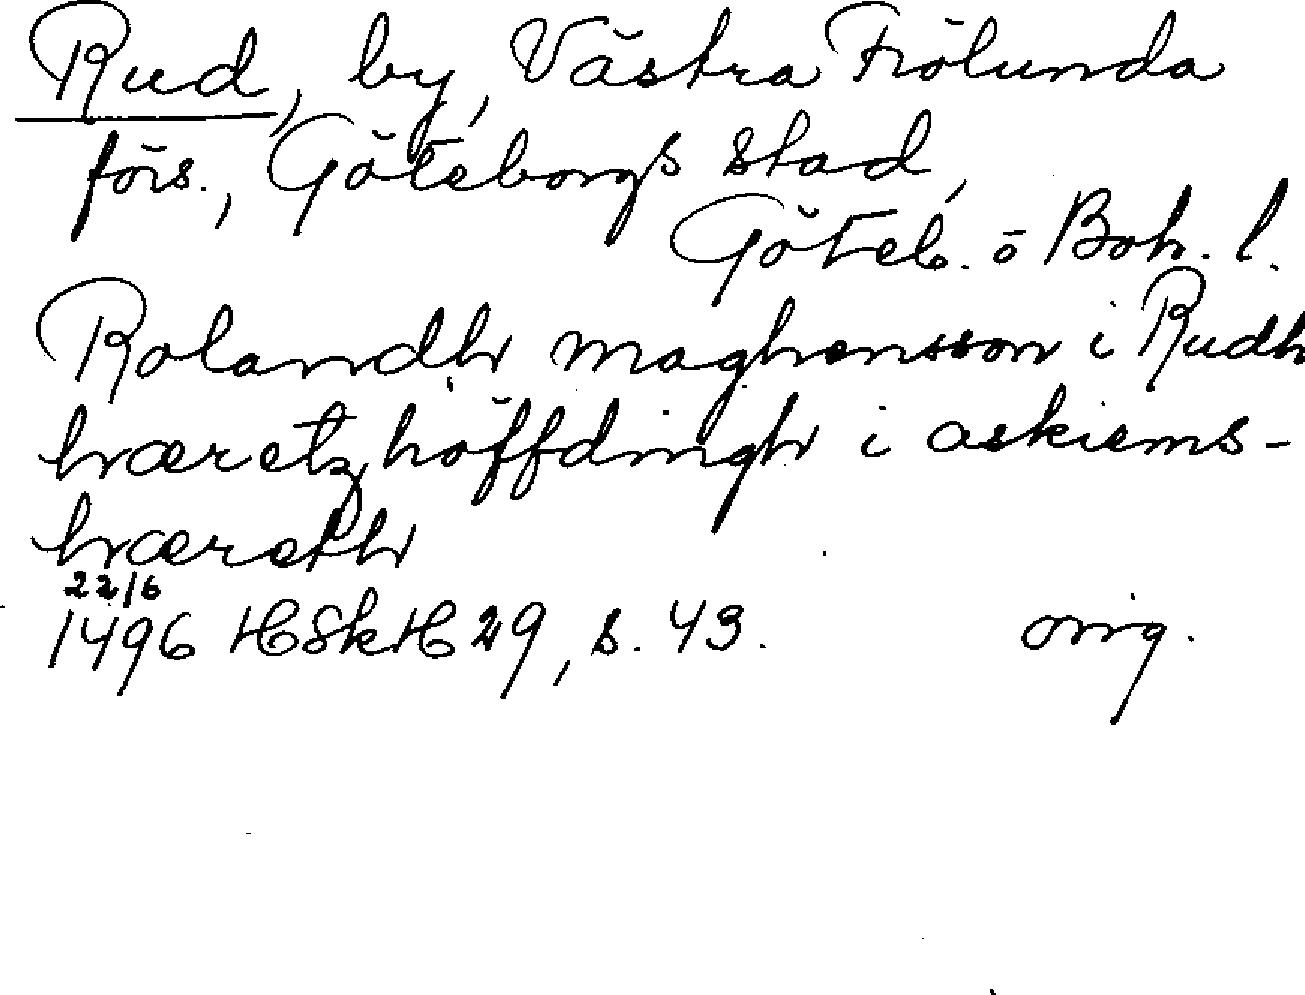 Rud, by, Västra Frölunda
förs., Göteborgs stad,
Göteb. o Boh. l.
Rolandh maghensson i Rudh
hæretzhöffdingh i askiems-
hæreth
22/6
1496 HSkH 29, s. 43. orig.